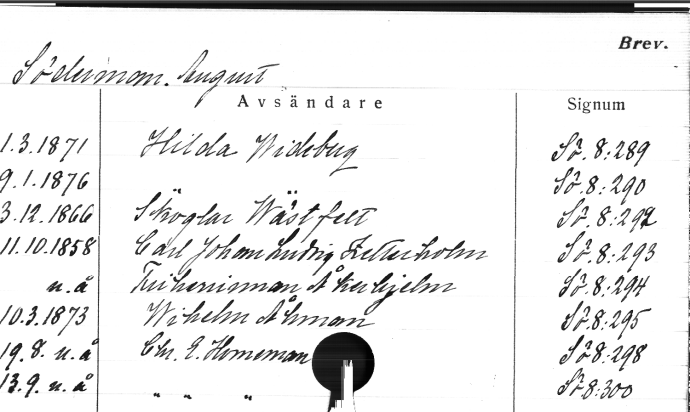 Brev.
Söderman. August
Avsändare Signum
1.3.1871 Hilda Wideberg Sö. 8:289
9.1.1876 Sö. 8:290
3.12.1866 Sköglar Wästfelt Sö. 8:292
11.10.1858 Carl Johan Ludvig Zetterholm Sö. 8:293
u.å Friherrinnan Åkerhjelm Sö. 8:294
10.3.1873 Wilhelm Åhman Sö. 8:295
19.8. u.å Chr. E. Horneman Sö 8:298
13.9. u.å " " " Sö 8:300